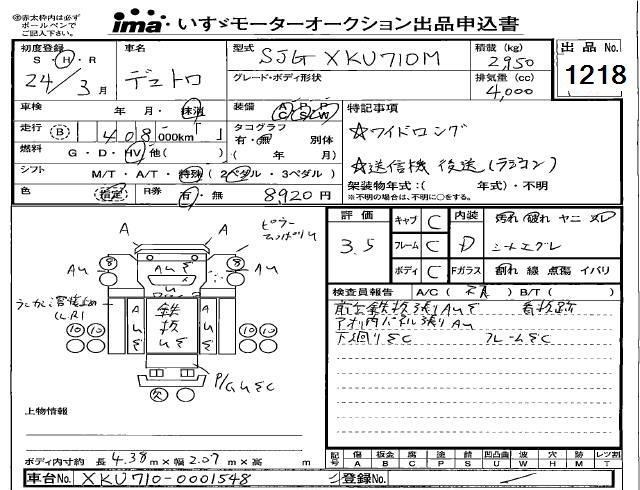 ◎赤太枠内は必ず
ボールペンで
ご記入下さい。
ima・いすゞモーターオークション出品申込書
初度登録 車名 型式 SJG-XKU710M 積載 (kg) 2,950 出品 No. 1218
S・H・R 24/3月 デュトロ グレード・ボディ形状 排気量 (cc) 4,000
車検 年・月・抹消 装備 A/C P/S P/W 特記事項
走行 (B) 408,000km タコグラフ 有・無 別体 ☆ワイドロング
燃料 G・D・HV・他( ) ( 年 月)
シフト M/T・A/T・特殊 (2ペダル・3ペダル) ☆送信機 後送(ラジコン)
架装物年式:( 年式)・不明
※不明の場合は、不明に○をする。
色 (指定) R券 有・無 8,920円
評価 3.5 キャブ C 内装 D 汚れ 破れ ヤニ ヌレ
フレーム C シートエグレ
ボディ C Fガラス 割れ 線 点傷 イバリ
検査員報告 A/C( ) B/T( )
A A
ピラー
⑧ ⑧
AU AU
A
鉄板
⑩⑩ ⑩⑩
欠
前台鉄板張りAUE 看板跡
アオリ内パネル張りAU
下回りEC フレームEC
上物情報
ボディ内寸約 長 4.38m×幅 2.07m×高 m
記号 傷A 板金B 腐C 塗P 錆S 凹凸曲U 波W 穴H 跡M レンズ割T
車台No. XKU710-0001548 登録No.